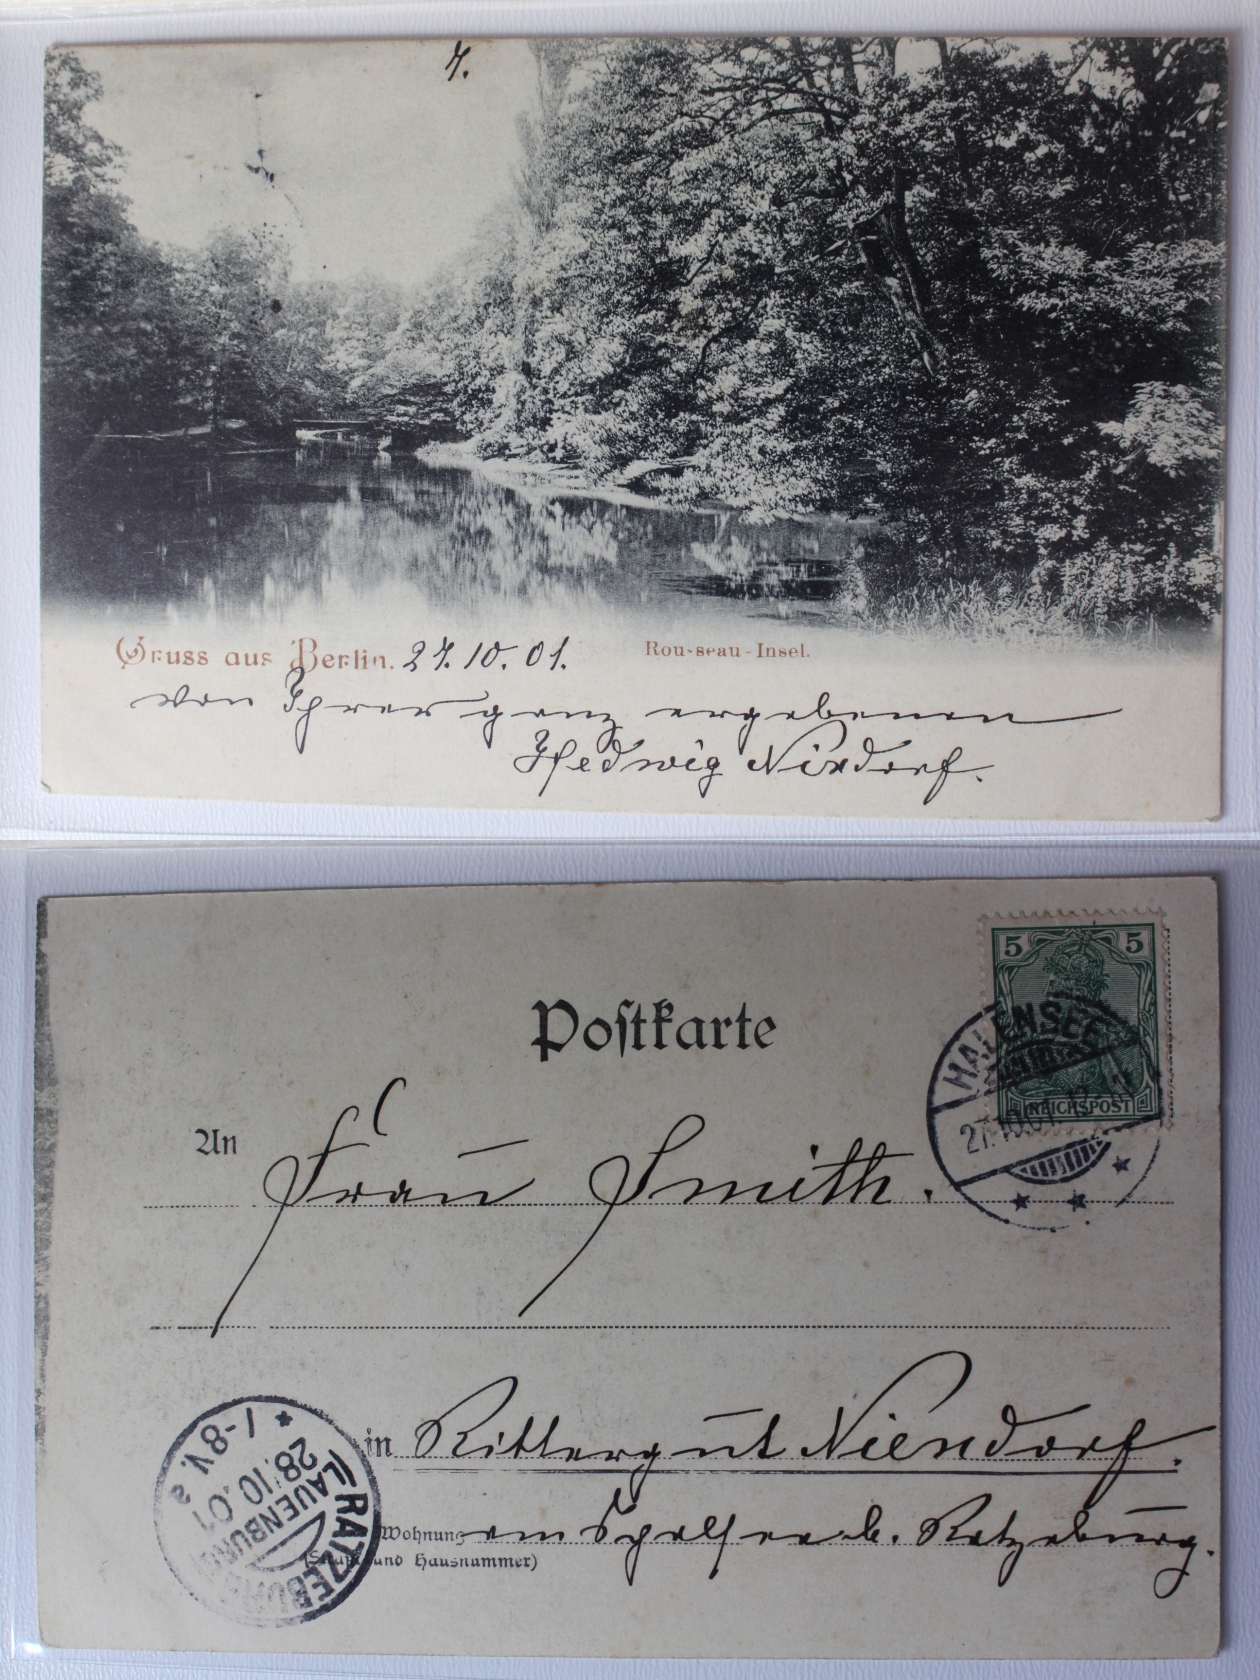 7.
Gruss aus Berlin. 27.10.01. Rousseau-Insel.
von Ihrer ganz ergebenen
Hedwig Nixdorf.
Postkarte
5 5
REICHSPOST
HALENSEE
27.10.01.
An Frau Smith.
in Rittergut Niendorf.
Wohnung am Schalsee b. Ratzeburg.
(Straße und Hausnummer)
RATZEBURG
(LAUENBURG)
28.10.01
7-8V.
a